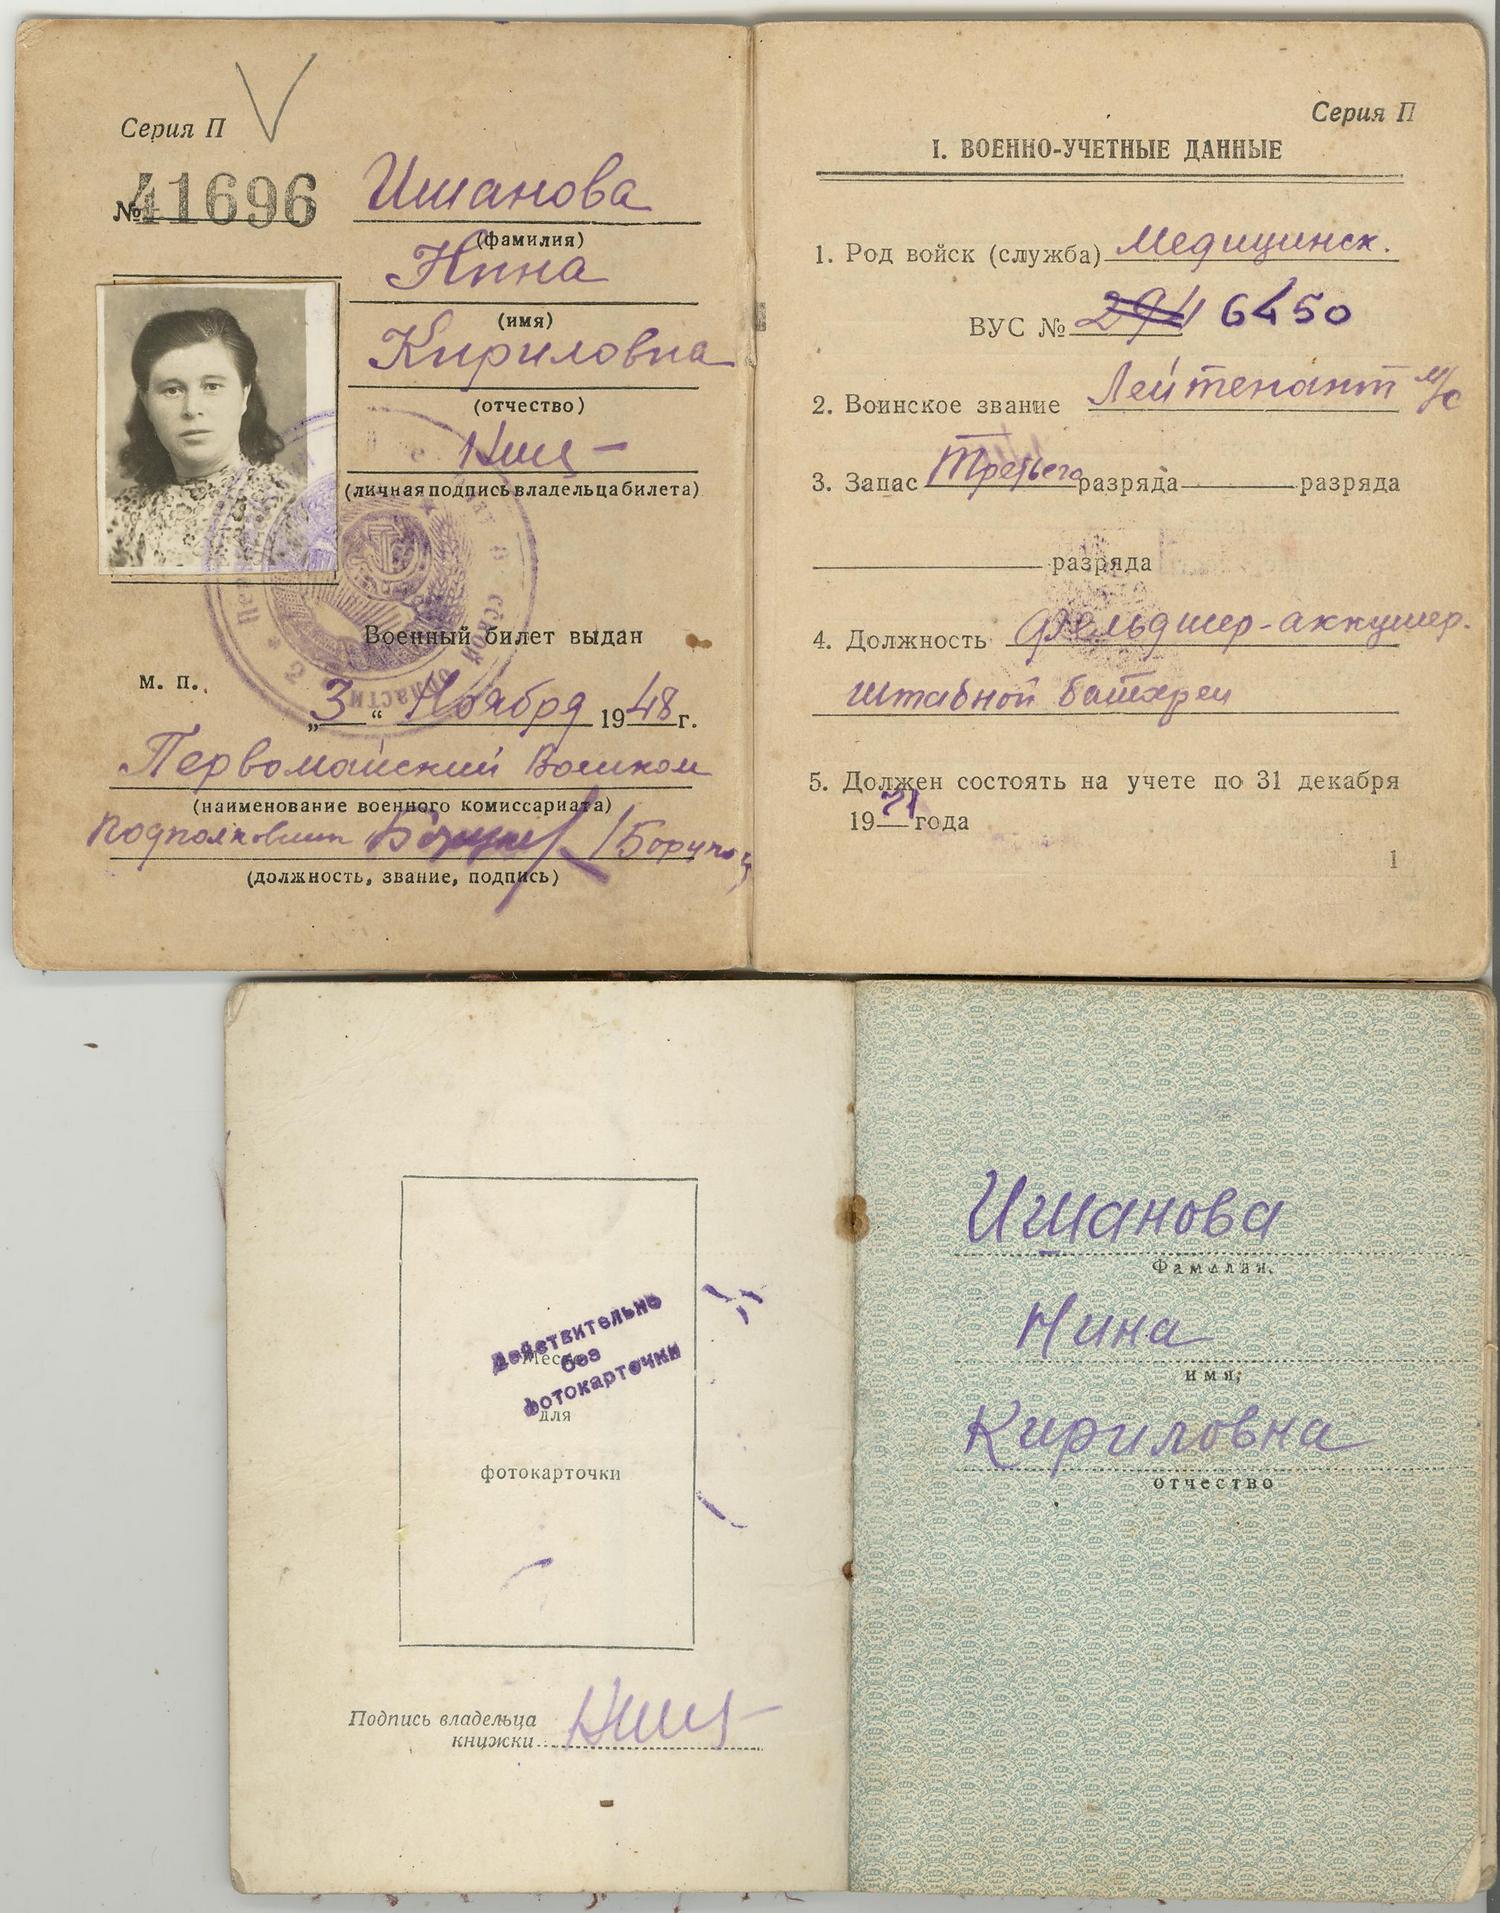 Серия П
№ 41696
Ишанова
(фамилия)
Нина
(имя)
Кириловна
(отчество)
(личная подпись владельца билета)
Военный билет выдан
м. п.
„3“ Ноября 1948 г.
Первомайский Военком
(наименование военного комиссариата)
подполковник
(должность, звание, подпись)
Серия П
I. ВОЕННО-УЧЕТНЫЕ ДАННЫЕ
1. Род войск (служба) Медицинск.
ВУС № 6450
2. Воинское звание Лейтенант м/с
3. Запас Третьего разряда — разряда
разряда
4. Должность фельдшер-аккушер.
штабной батареи
5. Должен состоять на учете по 31 декабря
1971 года
1
Действительно
без
фотокарточки
Место
для
фотокарточки
Подпись владельца
книжки
Ишанова
Фамилия,
Нина
имя,
Кириловна
отчество